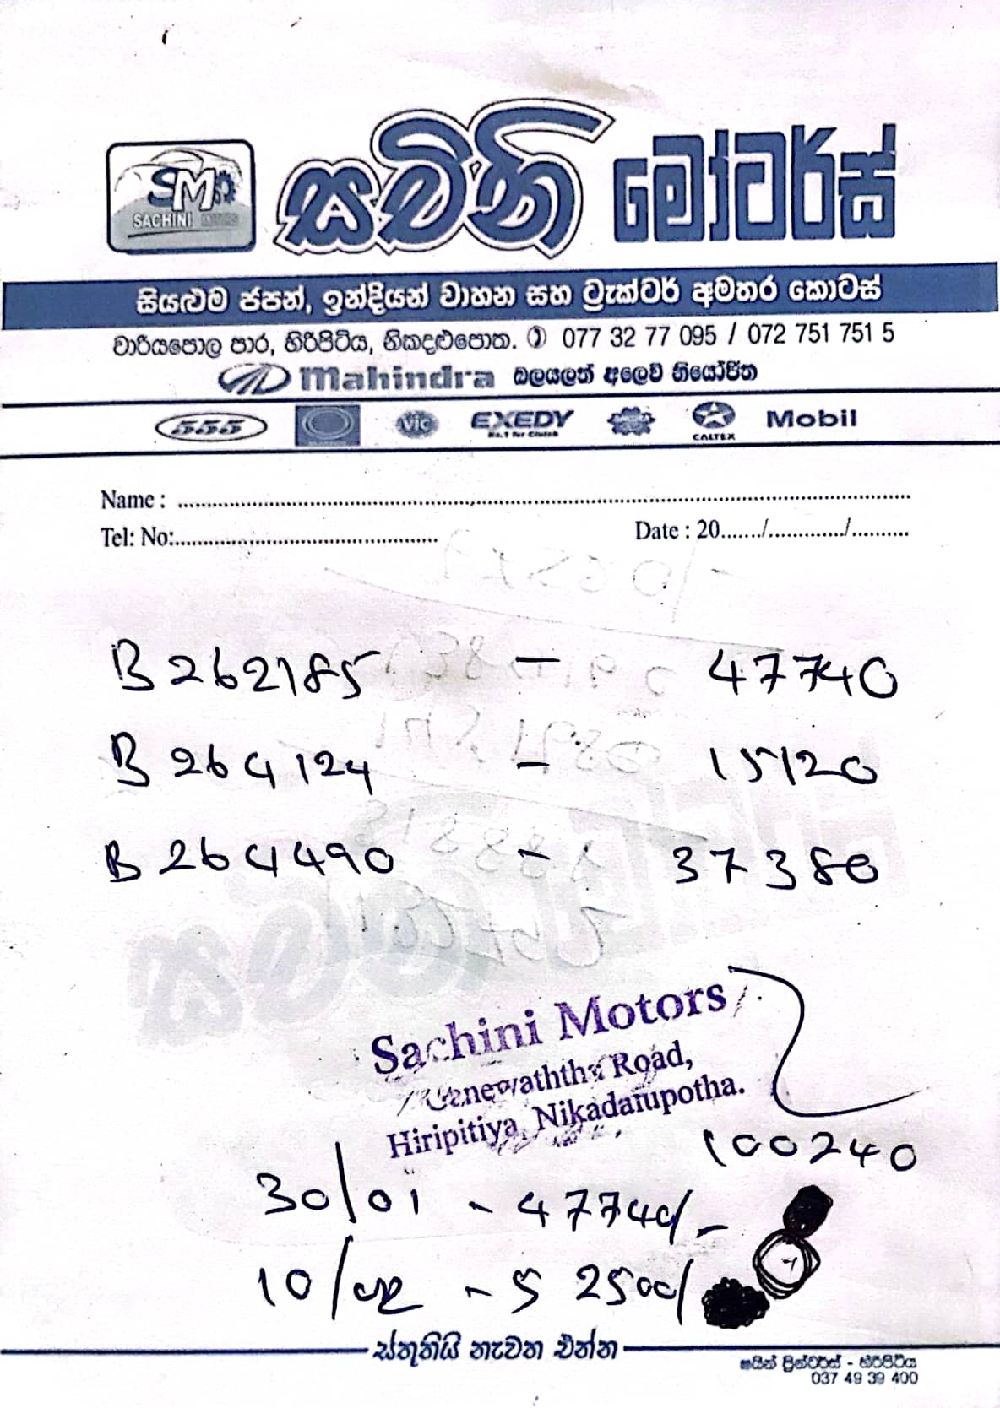 SM
SACHINI
සචිනි මෝටර්ස්
සියළුම ජපන්, ඉන්දියන් වාහන සහ ට්‍රැක්ටර් අමතර කොටස්
වාරියපොල පාර, හිරිපිටිය, නිකදළුපොත. 077 32 77 095 / 072 751 751 5
Mahindra බලයලත් අලෙවි නියෝජිත
555 Vic EXEDY CALTEX Mobil
Name :
Tel: No:
Date : 20......./............./..........
B 262185 - 47740
B 264124 - 15120
B 264490 - 37380
Sachini Motors
Road,
Hiripitiya, Nikadalupotha.
100240
30/01 - 47740/-
10/02 - 52500/
ස්තුතියි නැවත එන්න
ප්‍රින්ටර්ස් - හිරිපිටිය
037 49 39 400